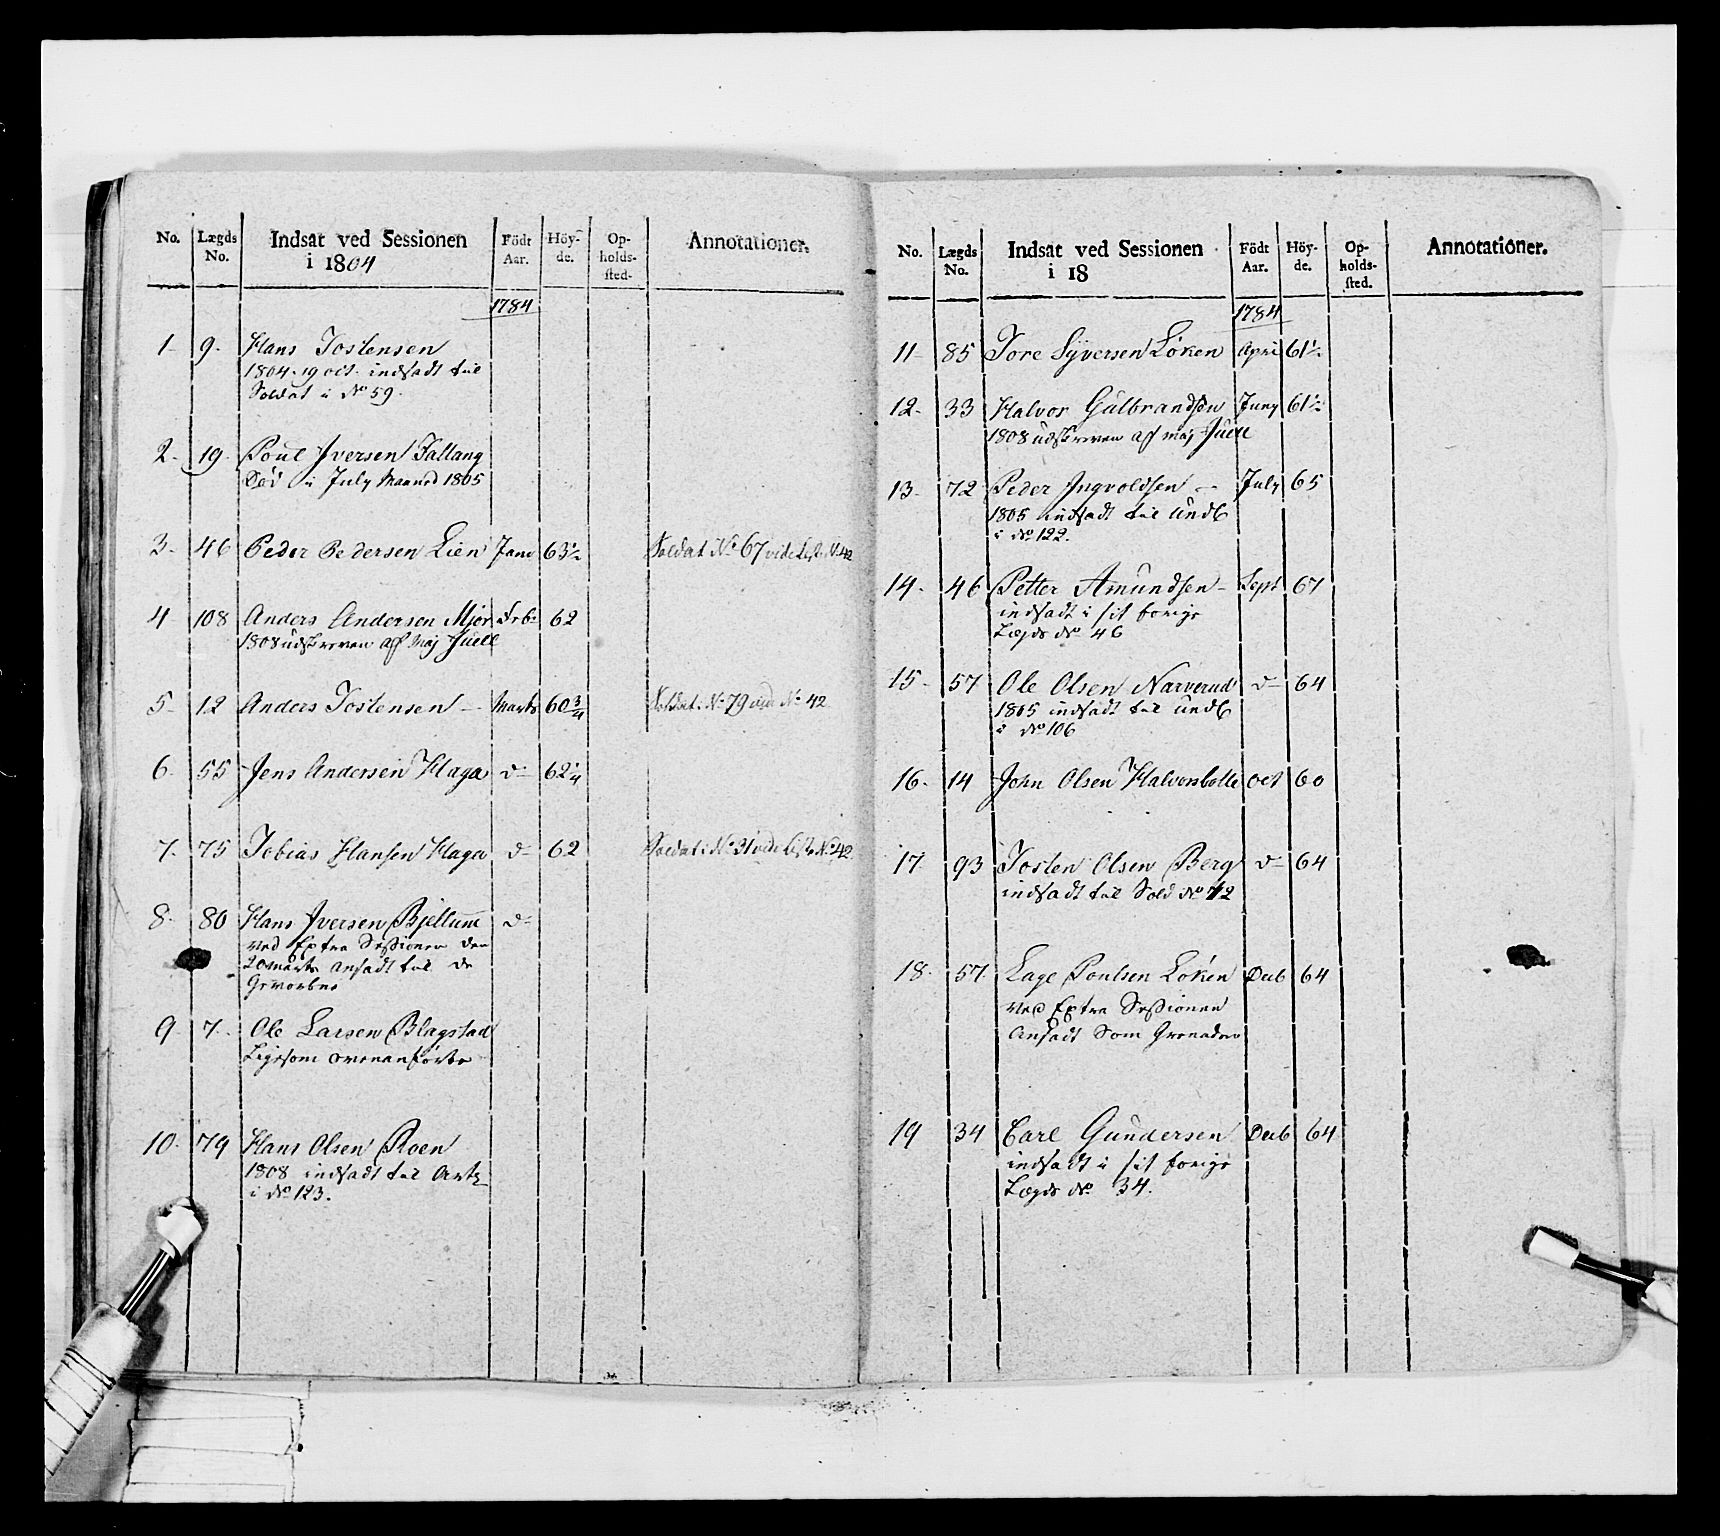 No. Lægds No. Indsat ved Sessionen i 1804 Födt Aar. Höyde. Opholdssted. Annotationer.
1784
1 9 Hans Jostensen
1804. 19 oct. indsadt til
Soldat i No 59.
2. 19. Poul Iversen Fallang
Död i July Maaned 1805
3. 46 Peder Pedersen Lien Janv 63½ Soldat No 67 vide Liste No 42
4 108 Anders Andersen Mjör Febr 62
1808 udskreven af Maj Juell
5 12 Anders Jostensen Marts 60¾ Soldat No 79 vide No 42
6. 55 Jens Andersen Haga d 62¼
7. 75 Tobias Hansen Haga d 62 Soldat i No 31 vide Liste No 42
8. 80 Hans Iversen Bjellum d
ved Extra Sessionen den
20 Marts ansadt til de
Gevorbne
9 7. Ole Larsen Blagstad
Ligesom ovenanförte
10. 79 Hans Olsen Roen
1808 indsadt til Artl
i No 123.
No. Lægds No. Indsat ved Sessionen i 18 Födt Aar. Höyde. Opholdssted. Annotationer.
1784
11 85 Tore Syversen Löken April 61½
12. 33 Halvor Gulbrandsen Juny 61½
1808 udskreven af Maj Juell
13. 72 Peder Ingvoldsen July 65
1805 indsadt til Undl
i No 122.
14. 46 Petter Amundsen Sept 67
indsadt i sit forige
Lægds No 46
15 57 Ole Olsen Narverud d 64
1805 indsadt til Undl
i No 106
16. 14 John Olsen Halvorsbølle Oct 60
17 93 Josten Olsen Berg d 64
indsadt til Sold No 42
18. 57 Lage Poulsen Löken Decb 64
ved Extra Sessionen
ansadt som Grenader
19 34 Carl Gundersen Decb 64
indsadt i sit forige
Lægds No 34.